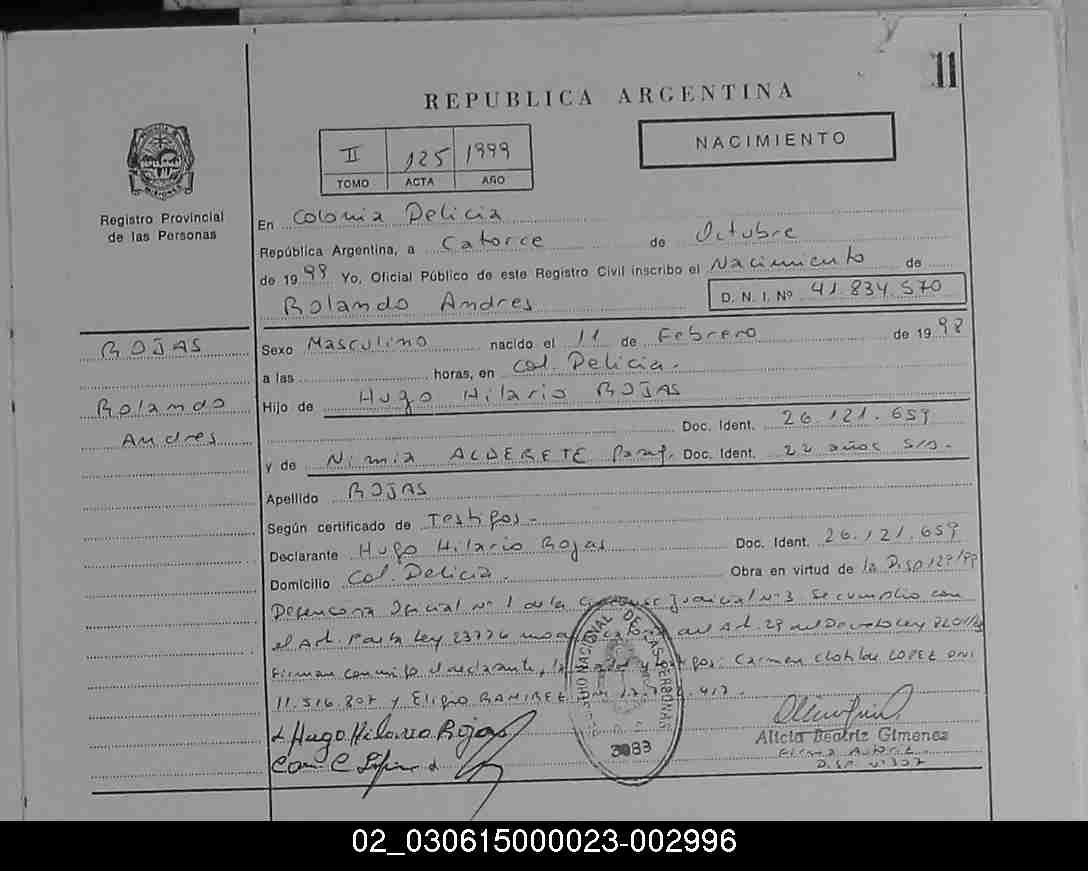 11
REPUBLICA ARGENTINA
II 125 1999
TOMO ACTA AÑO
NACIMIENTO
MISIONES
Registro Provincial
de las Personas
En Colonia Delicia
República Argentina, a Catorce de Octubre
de 1999 Yo, Oficial Público de este Registro Civil inscribo el Nacimiento de
Rolando Andres D. N. I. Nº 41.834.570
ROJAS
Rolando
Andres
Sexo Masculino nacido el 11 de Febrero de 1998
a las horas, en Col. Delicia.
Hijo de Hugo Hilario ROJAS
Doc. Ident. 26.121.659
y de Nimia ALDERETE Parag. Doc. Ident. 22 años S/D.
Apellido ROJAS
Según certificado de Testigos.-
Declarante Hugo Hilario Rojas Doc. Ident. 26.121.659
Domicilio Col. Delicia. Obra en virtud de la Disp 129/99
Defensora Oficial Nº 1 de la Judicial Nº 3 Se cumplio con
el Art. Ley 23776 del Art. 29 del Decreto Ley
Firman conmigo el declarante, y testigos: Carmen Clotilde LOPEZ DNI
11.516.807 y Eligio RAMIREZ
Hugo Hilario Rojas
REGISTRO NACIONAL DE LAS PERSONAS
3083
Alicia Beatriz Gimenez
Firma Autoriz.
Disp. Nº 307
02_030615000023-002996